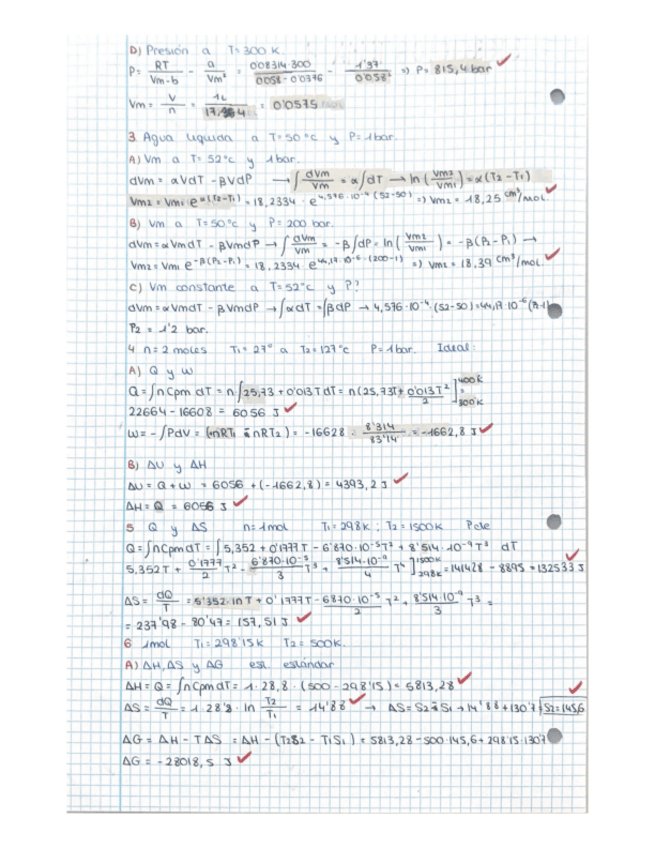 D) Presión a T=300 K.
P= RT/Vm-b - a/Vm² = 0'08314·300/0'058-0'0376 - 1'37/0'058² => P= 815,4 bar
Vm = V/n = 1L/17. 4 = 0'0575
3 Agua líquida a T=50°c y P=1bar.
A) Vm a T= 52°c y 1bar.
dVm= αVdT - βVdP → ∫dVm/Vm = α∫dT → ln(Vm2/Vm1) = α(T2-T1)
Vm2= Vm1 e^α(T2-T1) = 18,2334 · e^4,576·10⁻⁴(52-50) => Vm2= 18,25 cm³/mol.
B) Vm a T=50°c y P= 200 bar.
dVm= αVmdT - βVmdP → ∫dVm/Vm = -β∫dP = ln(Vm2/Vm1) = -β(P2-P1) →
Vm2= Vm1 e^-β(P2-P1) = 18,2334 e^44,17·10⁻⁶·(200-1) => Vm2= 18,39 cm³/mol.
C) Vm constante a T=52°c y P?
dVm= αVmdT - βVmdP → ∫αdT = ∫βdP → 4,576·10⁻⁴·(52-50)=44,17·10⁻⁶(P2-1)
P2 = 1'2 bar.
4 n=2 moles T1= 27° a T2=127°c P=1bar. Ideal:
A) Q y W
Q= ∫nCpm dT = n∫25,73 + 0'013TdT = n(25,73T + 0'013T²/2)]400K 300K =
22664 - 16608 = 6056 J
W= -∫PdV = (nRT1 - nRT2) = -16628 · 8'314/83'14 = -1662,8 J
B) ΔU y ΔH
ΔU = Q + W = 6056 + (-1662,8) = 4393,2 J
ΔH = Q = 6056 J
5 Q y ΔS n=1mol T1=298K ; T2=1500K Pcte
Q= ∫nCpmdT = ∫5,352 + 0'1777T - 6'870·10⁻⁵T² + 8'514·10⁻⁹T³ dT
5,352T + 0'1777/2 T² - 6'870·10⁻⁵/3 T³ + 8'514·10⁻⁹/4 T⁴]1500K 298K =141428 - 8895 =132533 J
ΔS= dQ/T = 5'352·lnT + 0'1777T - 6870·10⁻⁵/2 T² + 8'514·10⁻⁹/3 T³ =
= 237'98 - 80'47 = 157,51 J
6 1mol T1= 298'15K T2= 500K.
A) ΔH, ΔS y ΔG est. estándar
ΔH= Q = ∫nCpmdT = 1·28,8·(500-298'15) = 5813,28
ΔS= dQ/T = 1·28'8·ln T2/T1 = 14'88 → ΔS= S2-S1 → 14'88+130'7 S2=145,6
ΔG= ΔH - TΔS = ΔH - (T2S2 - T1S1) = 5813,28 - 500·145,6 + 298'15·130'7
ΔG= -28018,5 J